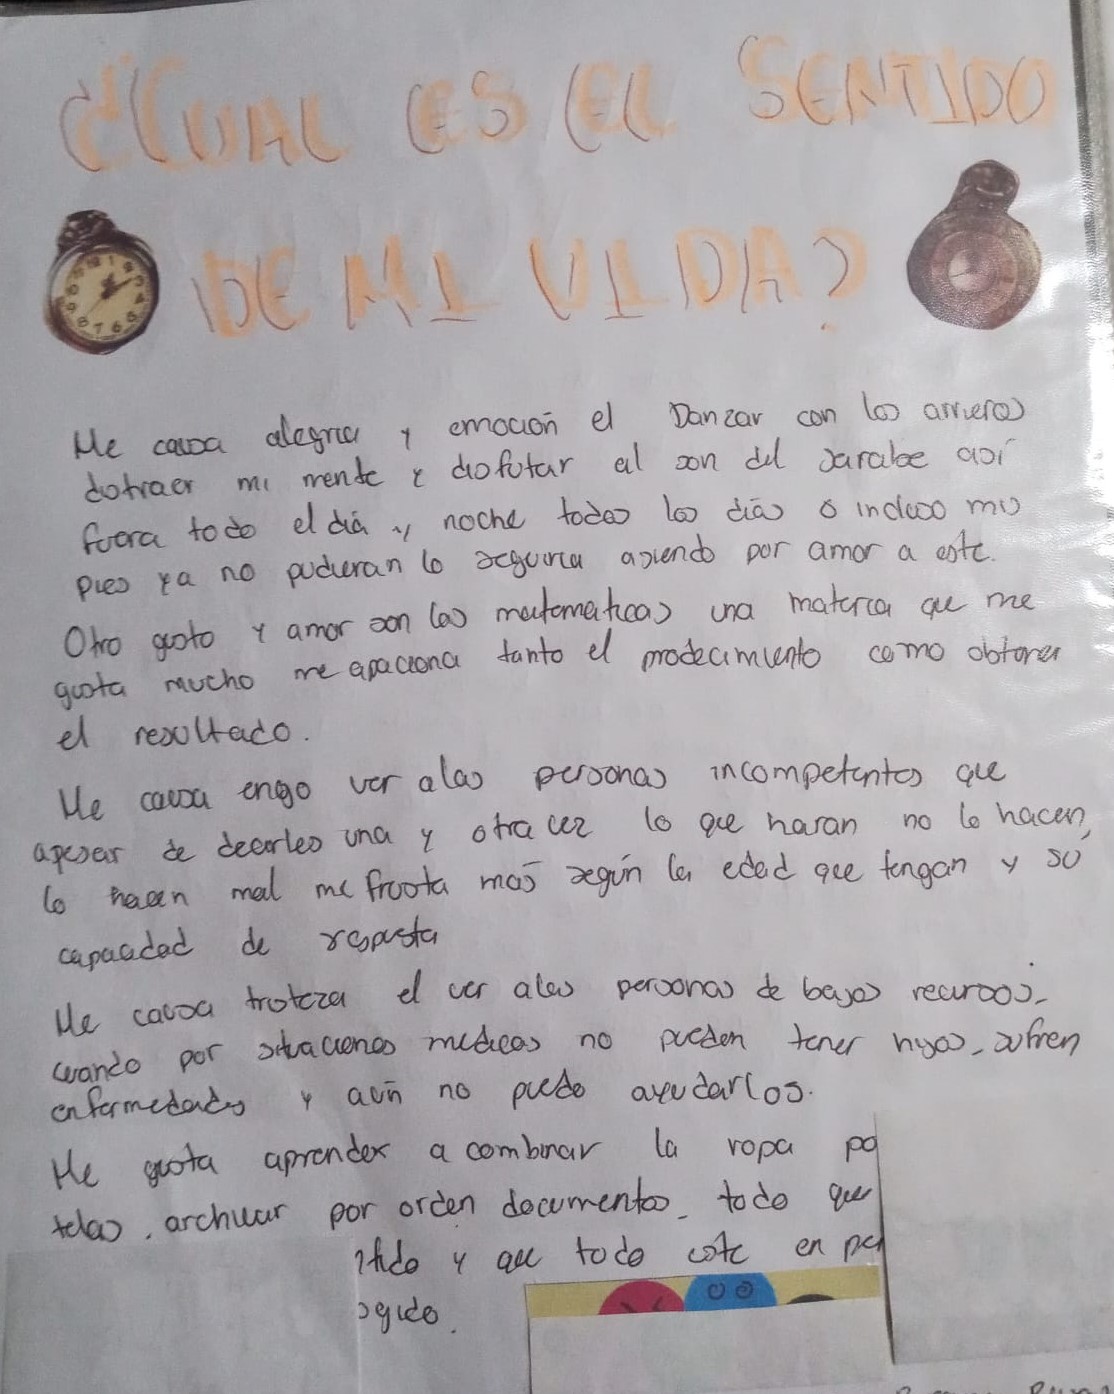 ¿CUAL ES EL SENTIDO
DE MI VIDA?
Me causa alegria y emoción el Danzar con los arrieros
distraer mi mente y disfutar al son del Jarabe así
fuera todo el día y noche todos los días o incluso mis
pies ya no pudieran lo seguiria asiendo por amor a este.
Otro gusto y amor son las matematicas una materia que me
gusta mucho me apaciona tanto el prodecimiento como obtener
el resultado.
Me causa engo ver alas personas incompetentes que
apesar de decirles una y otra vez lo que haran no lo hacen,
lo hacen mal me frusta mas según la edad que tengan y su
capacidad de respusta
Me causa tristeza el ver alas personas de bajos recursos,
cuando por situaciones medicas no pueden tener hijos, sufren
enfermedades y aún no puedo ayudarlos.
Me gusta aprender a combinar la ropa po
telas, archivar por orden documentos, todo que
tido y que todo este en per
ogido.